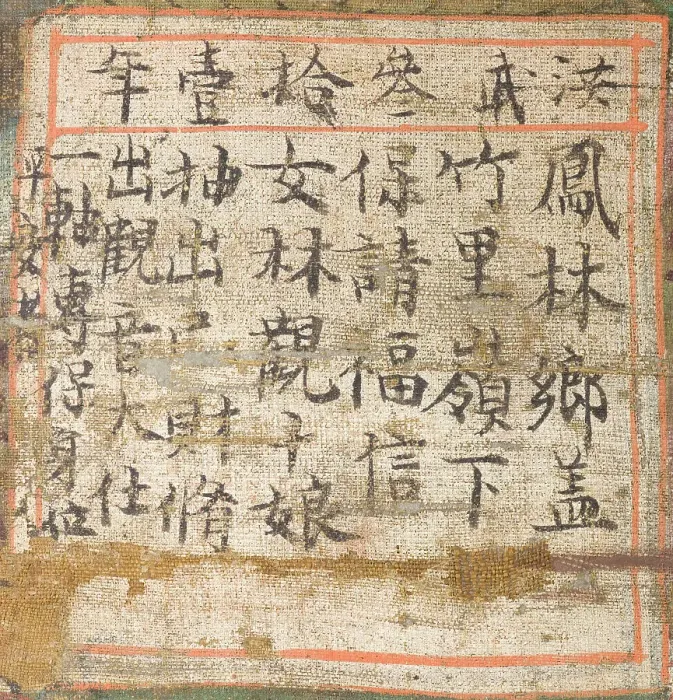 洪武叁拾壹年
鳳林鄉盖
竹里嶺下
保請福信
女林觀子娘
抽出己財脩
出觀音大仕
一軸專保身位
平安